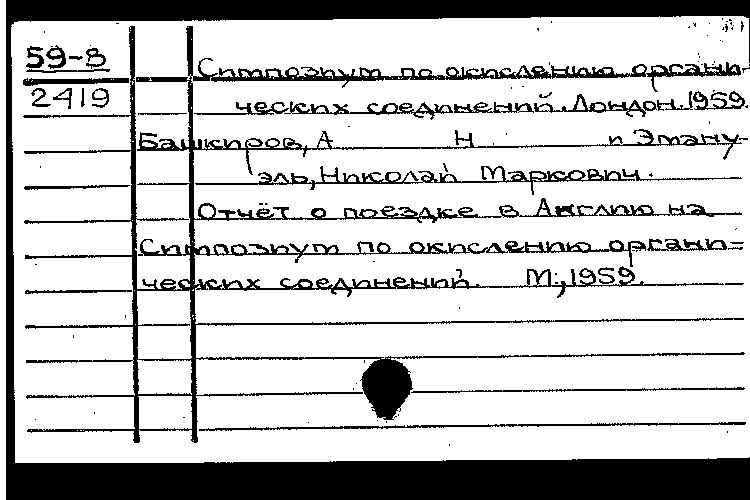 59-8
2419
Симпозиум по окислению органи-
ческих соединений. Лондон. 1959.
Башкиров, А Н и Эману-
эль, Николай Маркович.
Отчёт о поездке в Англию на
Симпозиум по окислению органи=
ческих соединений. М., 1959.